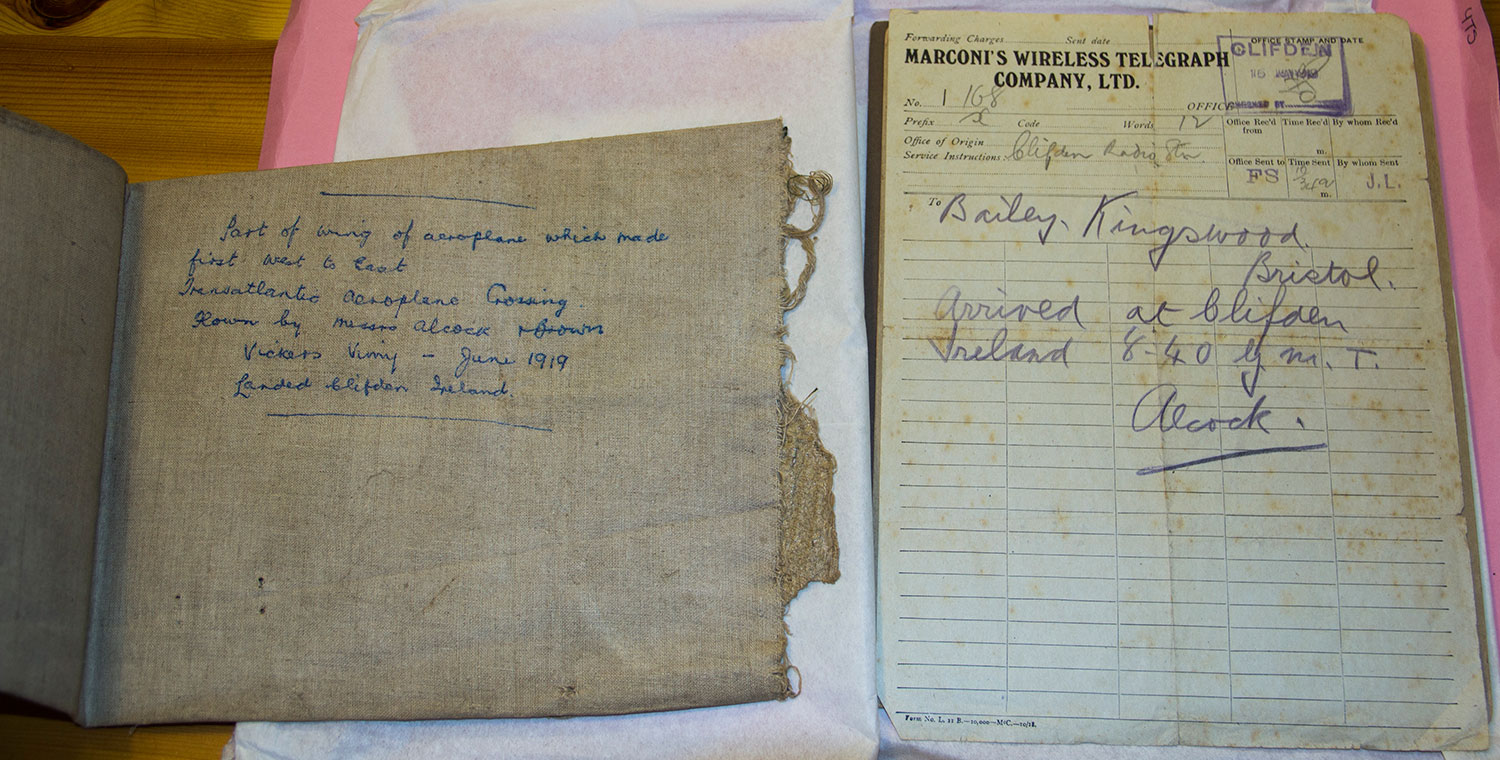 Part of wing of aeroplane which made
first west to East
Transatlantic aeroplane Crossing.
Flown by Messrs Alcock & Brown
Vickers Vimy - June 1919
Landed Clifden Ireland.
Forwarding Charges Sent date
MARCONI'S WIRELESS TELEGRAPH
COMPANY, LTD.
OFFICE STAMP AND DATE
CLIFDEN
No. 1 168 OFFICE
Prefix Code Words 12
Office of Origin
Service Instructions: Clifden Radio Stn
Office Rec'd from Time Rec'd By whom Rec'd
m.
Office Sent to Time Sent By whom Sent
FS m. J.L.
To Bailey. Kingswood.
Bristol.
Arrived at Clifden
Ireland 8-40 G.M.T.
Alcock.
Form No. L. 22 B.—10,000—McC.—10/18.
473